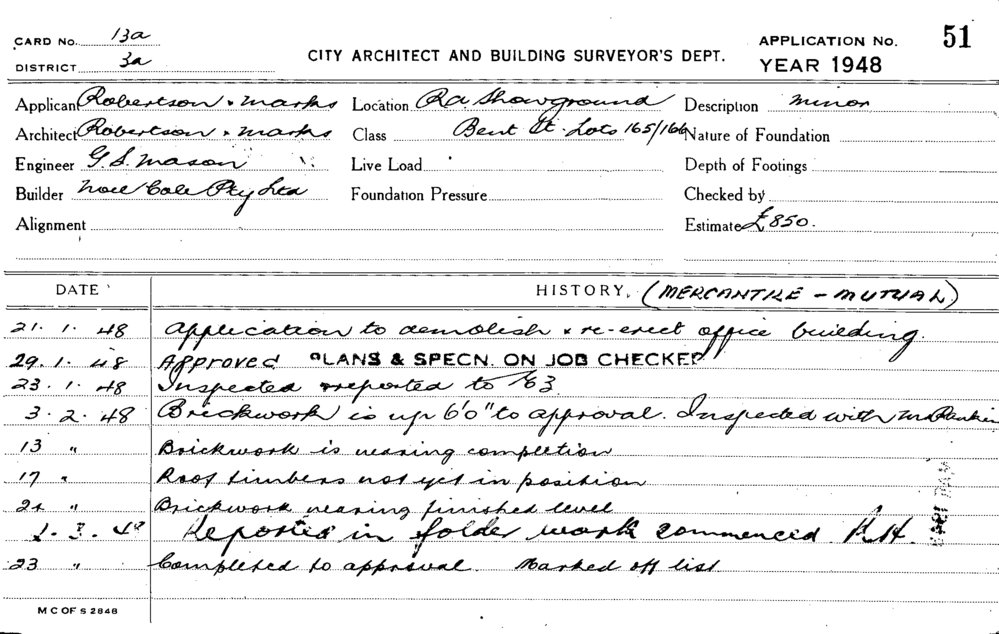 CARD No. 13a
DISTRICT 3a
CITY ARCHITECT AND BUILDING SURVEYOR'S DEPT.
APPLICATION No. 51
YEAR 1948
Applicant Robertson & Marks Location RA Showground Description Minor
Architect Robertson & Marks Class Bent St. Lots 165/166 Nature of Foundation
Engineer G. S. Mason Live Load Depth of Footings
Builder Noel Cole Pty Ltd Foundation Pressure Checked by
Alignment Estimate £850.
DATE HISTORY. (MERCANTILE - MUTUAL)
21. 1. 48 Application to demolish & re-erect office building.
29. 1. 48 Approved PLANS & SPECN. ON JOB CHECKED
23. 1. 48 Inspected & reported to 163
3. 2. 48 Brickwork is up 6'0" to approval. Inspected with Mr
13 " Brickwork is nearing completion
17 " Roof timbers not yet in position
24 " Brickwork nearing finished level
3. 48 Reported in folder work commenced
23 " Completed to approval. Marked off list.
M C OF S 2848